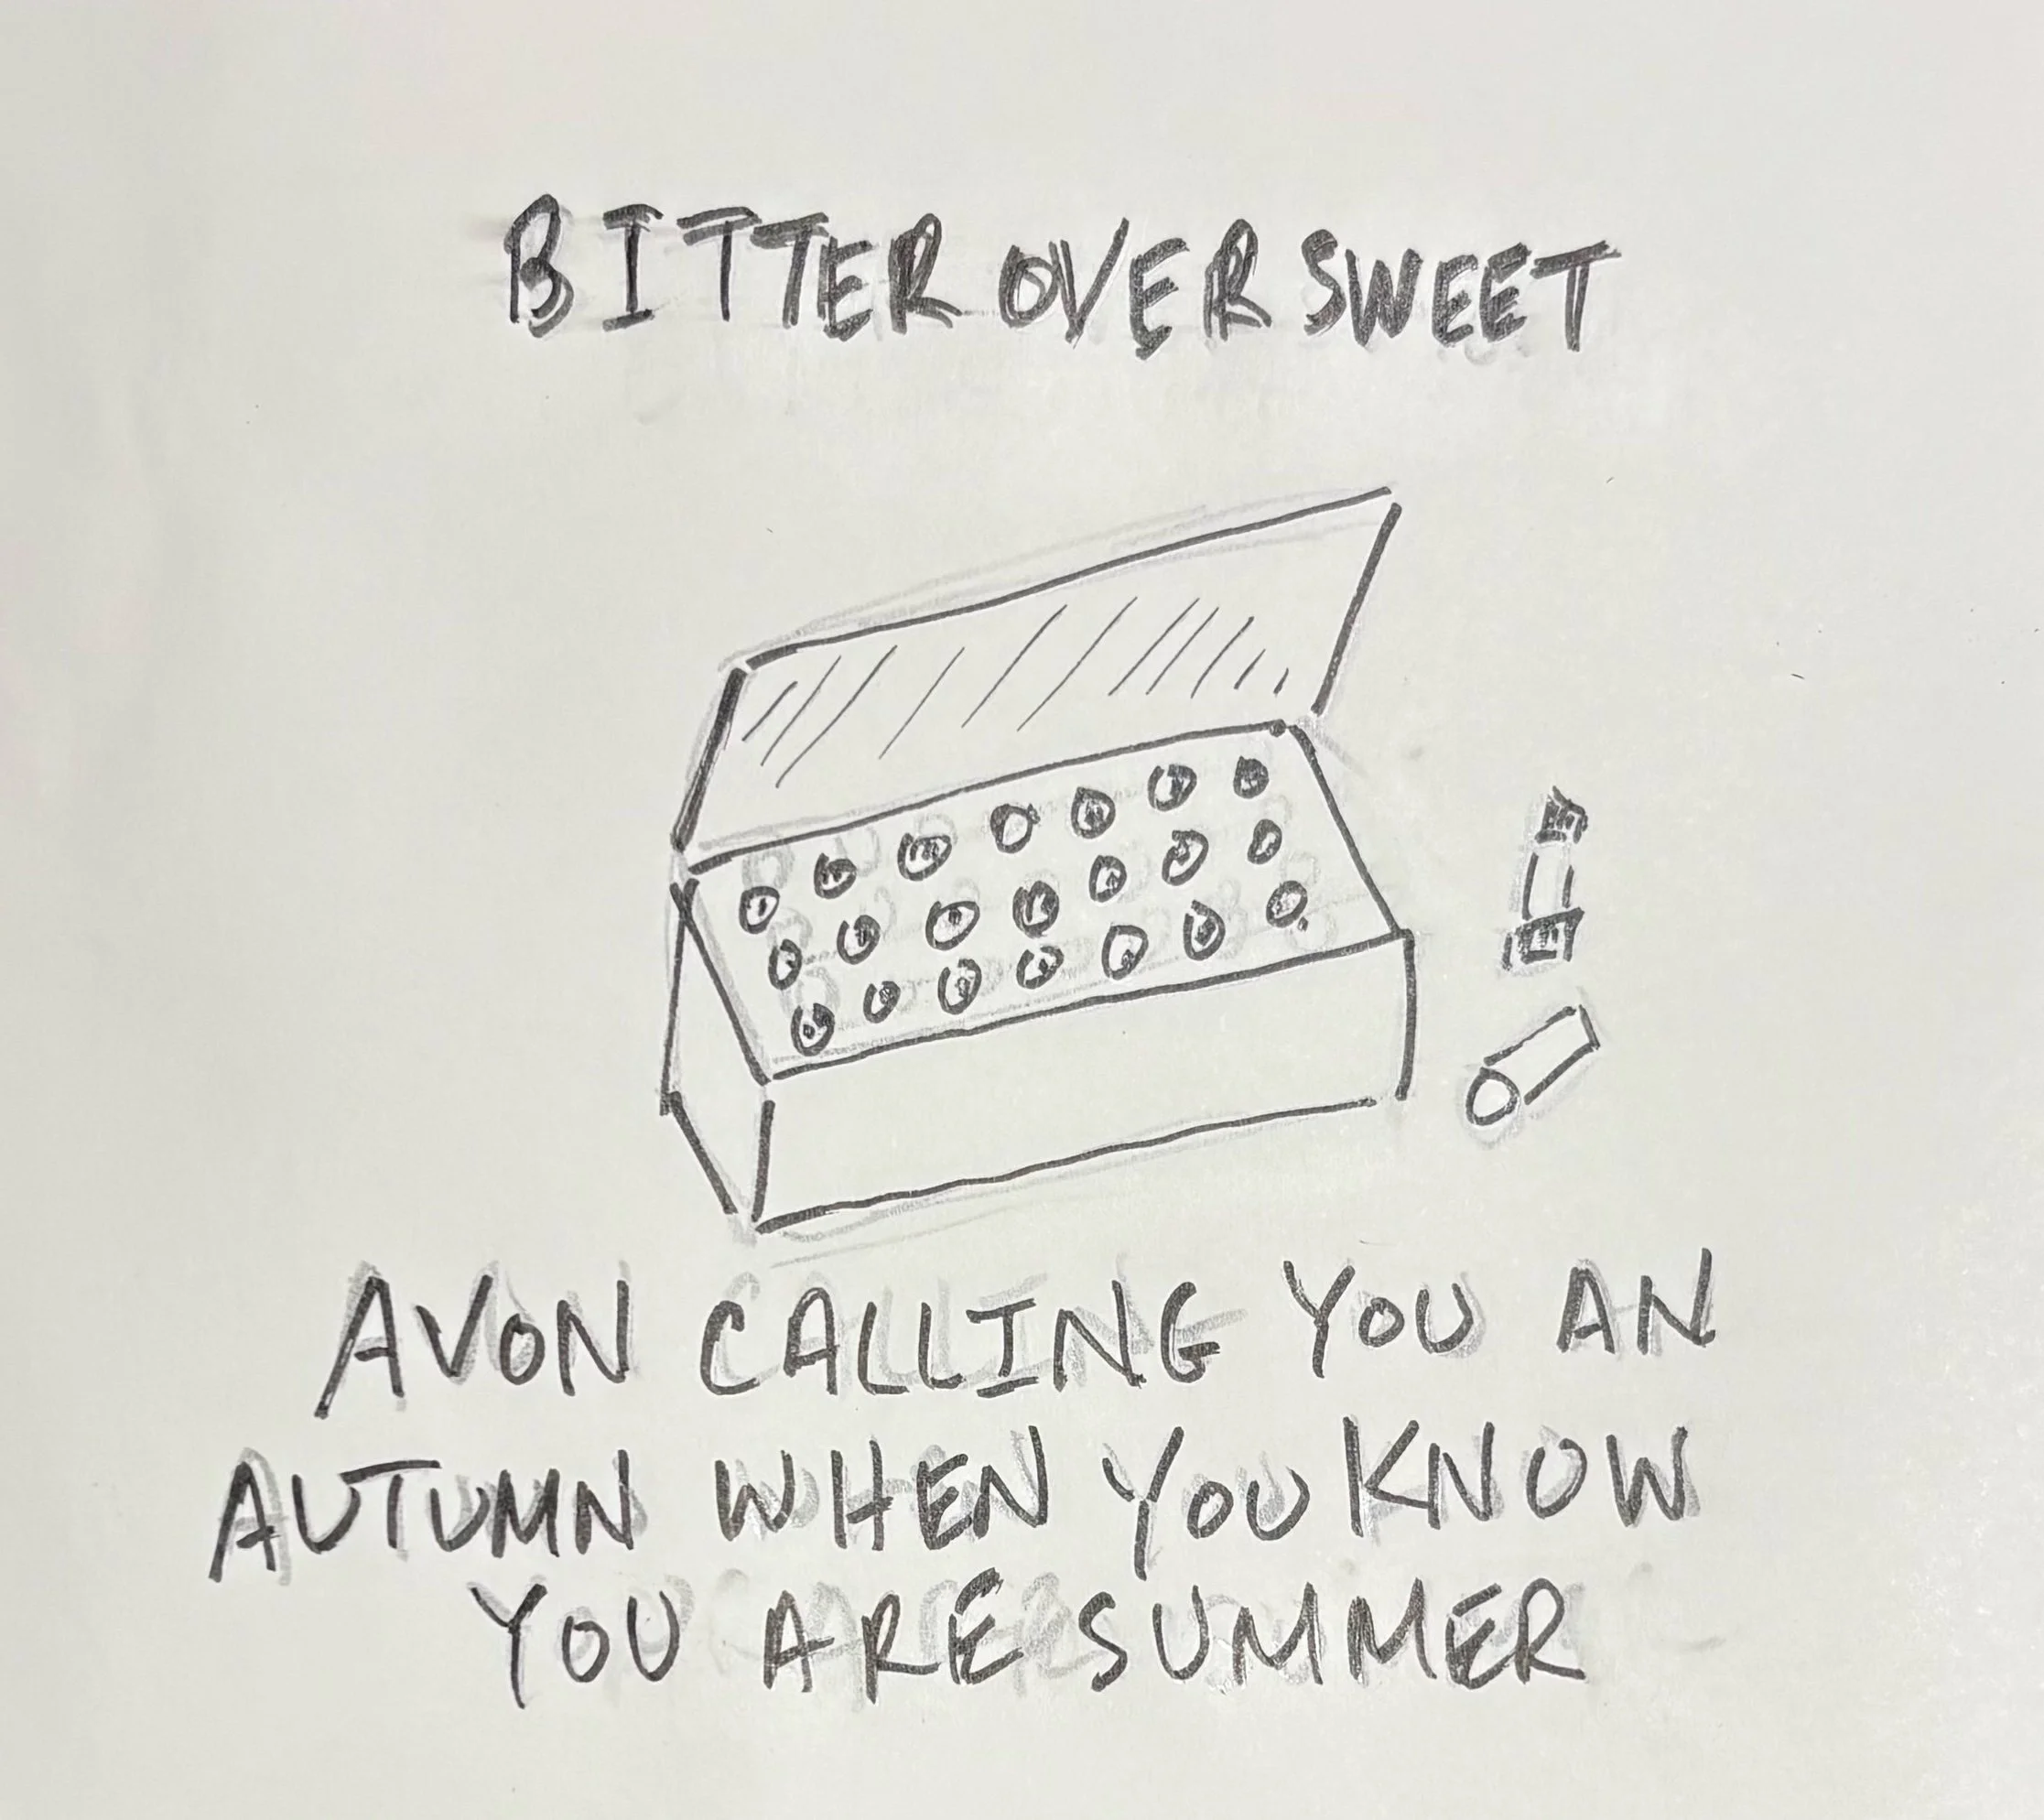 BITTER OVER SWEET
AVON CALLING YOU AN
AUTUMN WHEN YOU KNOW
YOU ARE SUMMER